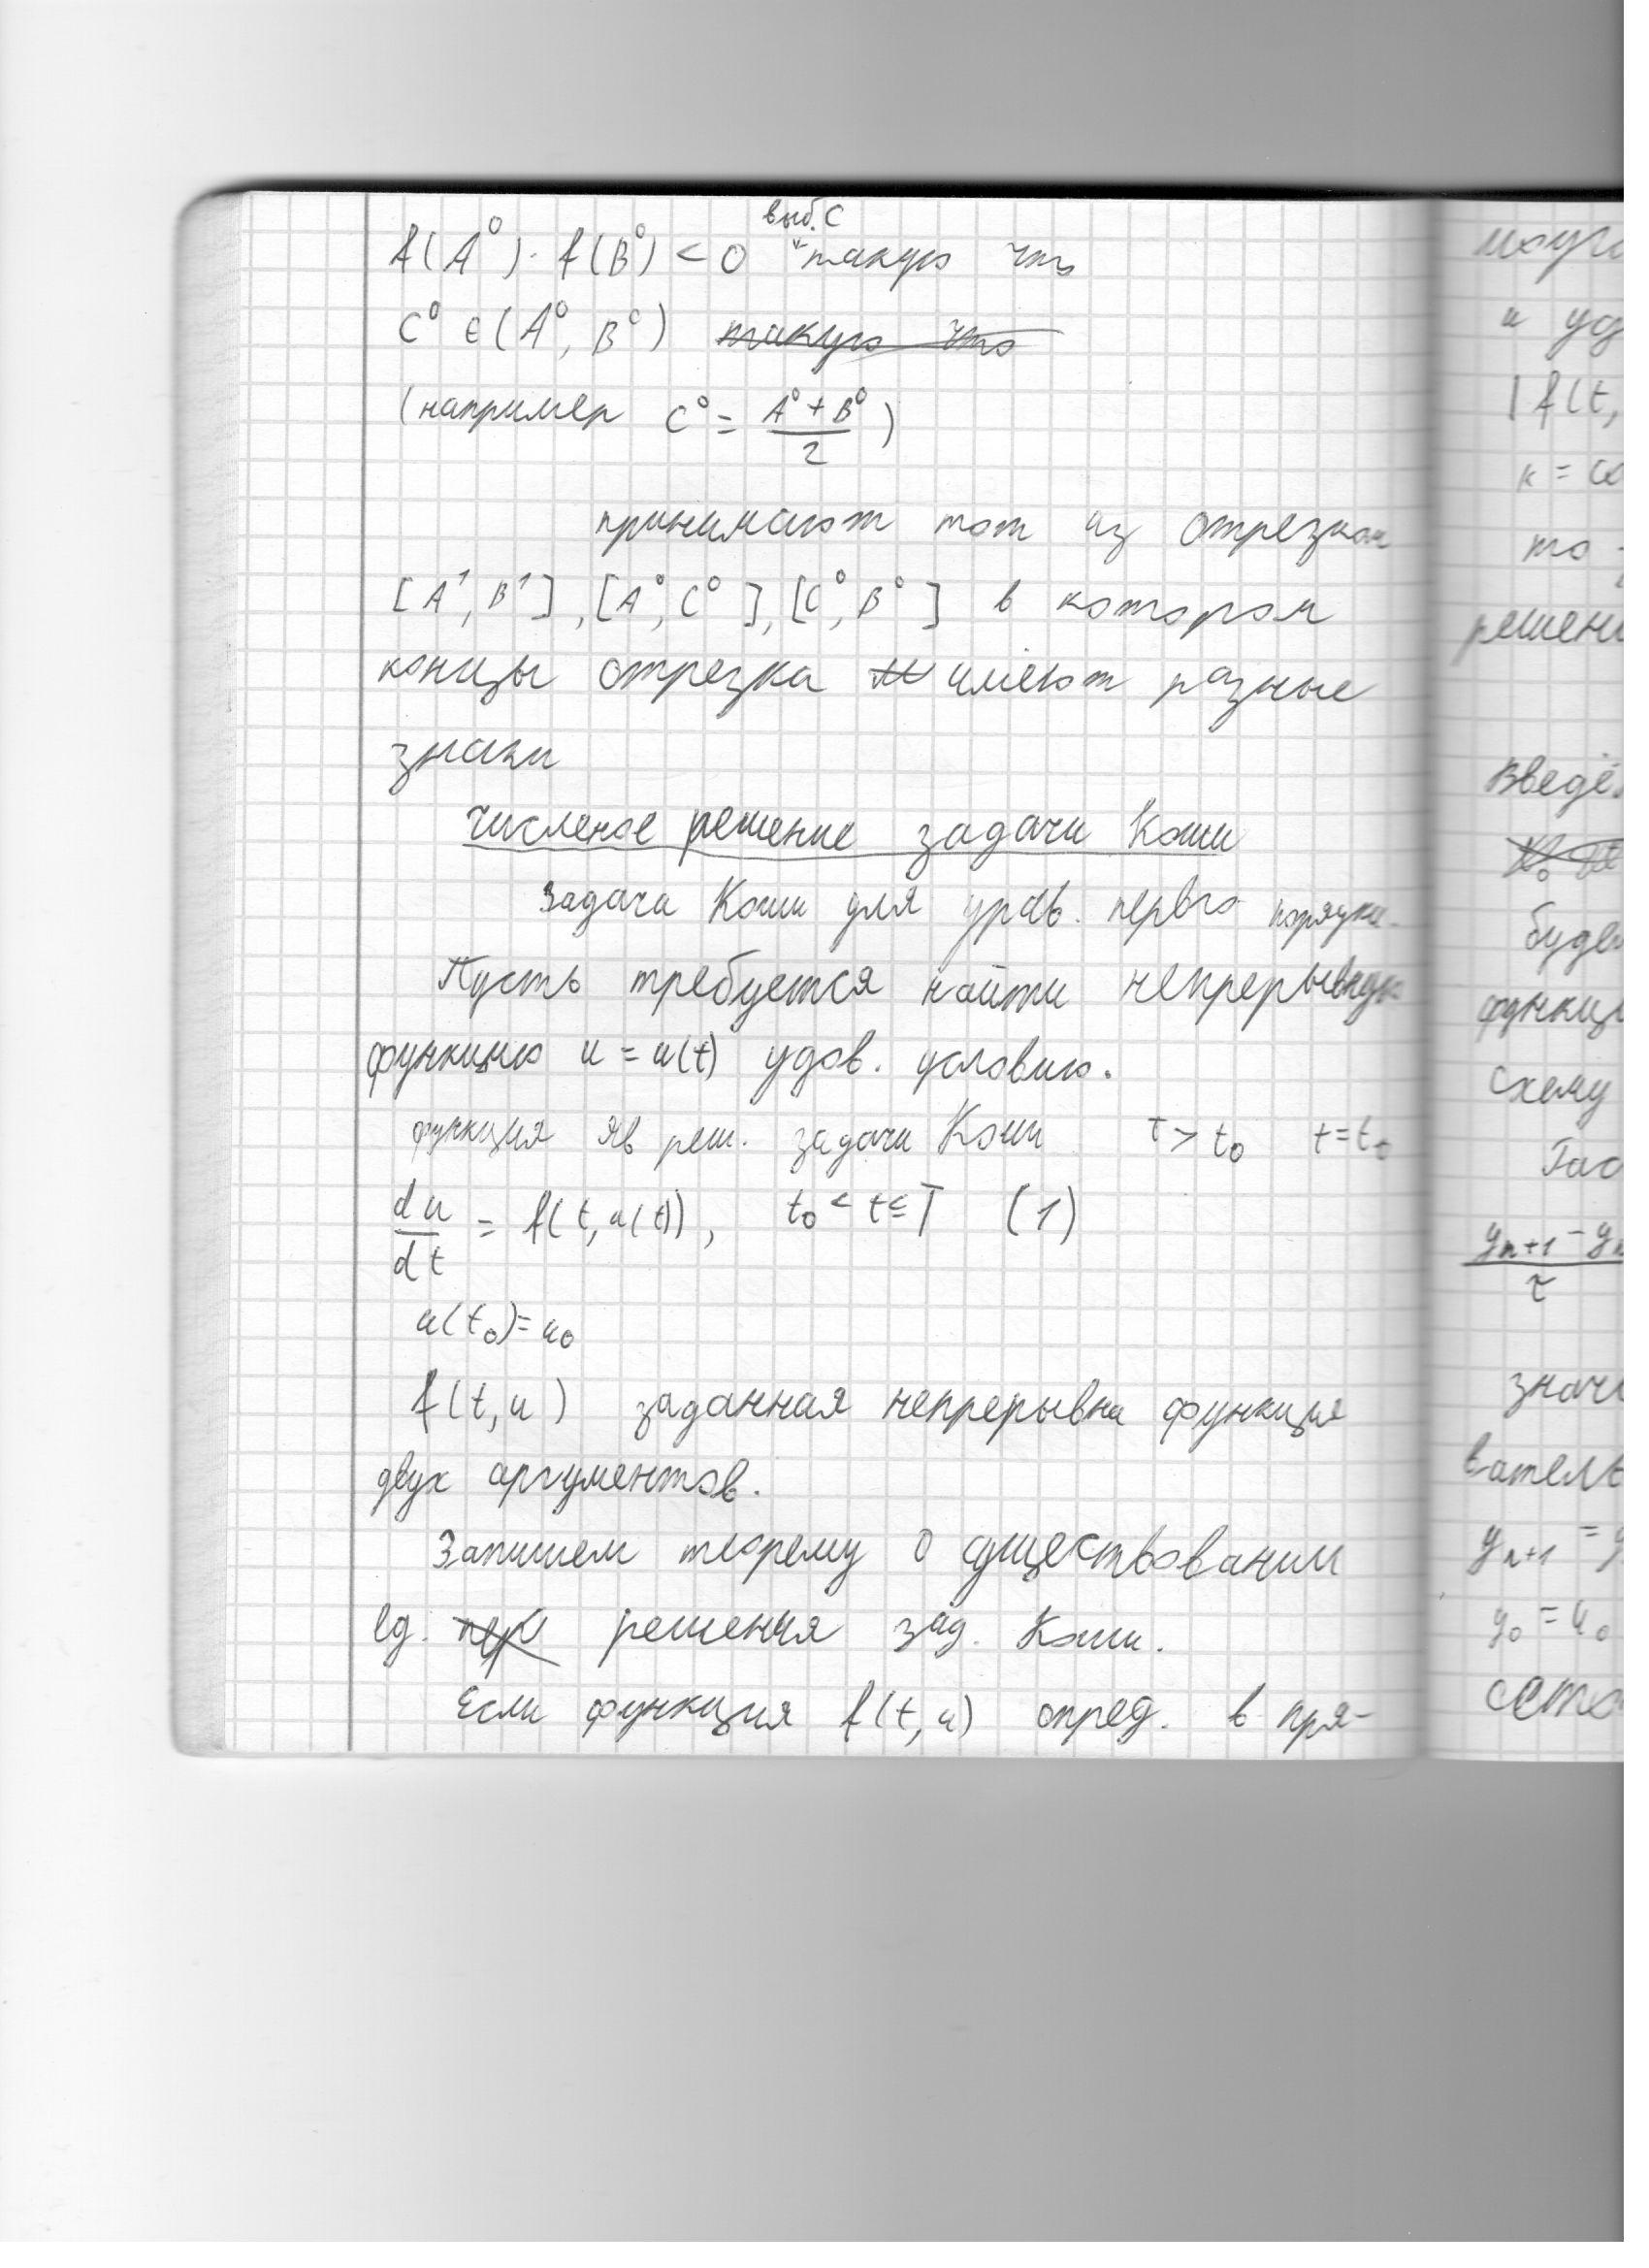 выб. C
f(A⁰)·f(B⁰) < 0 такую что
C⁰ ∈ (A⁰, B⁰) такую что
(например C⁰ = (A⁰ + B⁰)/2)
принимают тот из отрезков
[A¹, B¹], [A⁰, C⁰], [C⁰, B⁰] в котором
концы отрезка имеют разные
знаки
численое решение задачи Коши
Задача Коши для урав. первго порядка
Пусть требуется найти непрерывную
функцию u = u(t) удов. условию.
функция яв реш. задачи Коши t > t₀ t = t₀
du/dt = f(t, u(t)), t₀ < t ≤ T (1)
u(t₀) = u₀
f(t, u) заданная непрерывна функция
двух аргументов.
Запишем теорему о существовании
ед. решения зад. Коши.
Если функция f(t, u) опред. в пря-
и уд
|f(t,
то
решени
Введё
буде
функци
схему
yₙ₊₁ - yₙ
τ
значи
вател
yₙ₊₁ =
y₀ = u₀